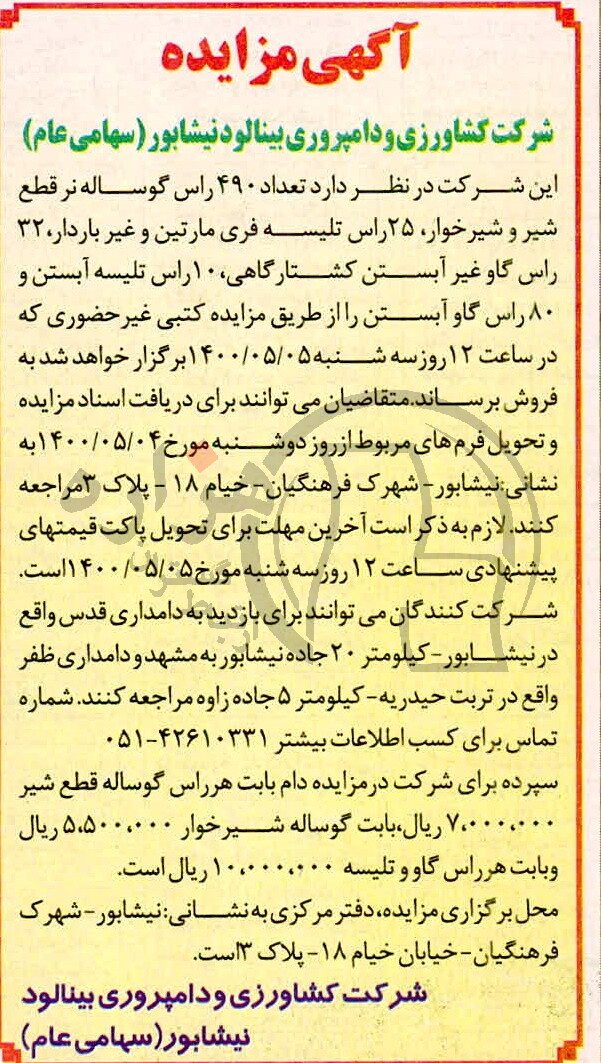 آگهی مزایده
شرکت کشاورزی و دامپروری بینالود نیشابور (سهامی عام)
این شرکت در نظر دارد تعداد ۴۹۰ راس گوساله نر قطع
شیر و شیرخوار، ۲۵راس تلیسه فری مارتین و غیر باردار،۳۲
راس گاو غیر آبستن کشتارگاهی،۱۰راس تلیسه آبستن و
۸۰ راس گاو آبستن را از طریق مزایده کتبی غیرحضوری که
در ساعت ۱۲ روز سه شنبه ۱۴۰۰/۰۵/۰۵ برگزار خواهد شد به
فروش برساند.متقاضیان می توانند برای دریافت اسناد مزایده
و تحویل فرم های مربوط از روز دوشنبه مورخ ۱۴۰۰/۰۵/۰۴ به
نشانی:نیشابور- شهرک فرهنگیان- خیام ۱۸ - پلاک ۳مراجعه
کنند. لازم به ذکر است آخرین مهلت برای تحویل پاکت قیمتهای
پیشنهادی ساعت ۱۲ روز سه شنبه مورخ ۱۴۰۰/۰۵/۰۵است.
شرکت کنندگان می توانند برای بازدید به دامداری قدس واقع
در نیشابور-کیلومتر ۲۰ جاده نیشابور به مشهد و دامداری ظفر
واقع در تربت حیدریه- کیلومتر ۵ جاده زاوه مراجعه کنند. شماره
تماس برای کسب اطلاعات بیشتر ۴۲۶۱۰۳۳۱-۰۵۱
سپرده برای شرکت درمزایده دام بابت هرراس گوساله قطع شیر
۷،۰۰۰،۰۰۰ ریال،بابت گوساله شیرخوار ۵،۵۰۰،۰۰۰ ریال
وبابت هرراس گاو و تلیسه ۱۰،۰۰۰،۰۰۰ ریال است.
محل برگزاری مزایده،دفتر مرکزی به نشانی:نیشابور-شهرک
فرهنگیان-خیابان خیام ۱۸- پلاک ۳است.
شرکت کشاورزی و دامپروری بینالود
نیشابور(سهامی عام)